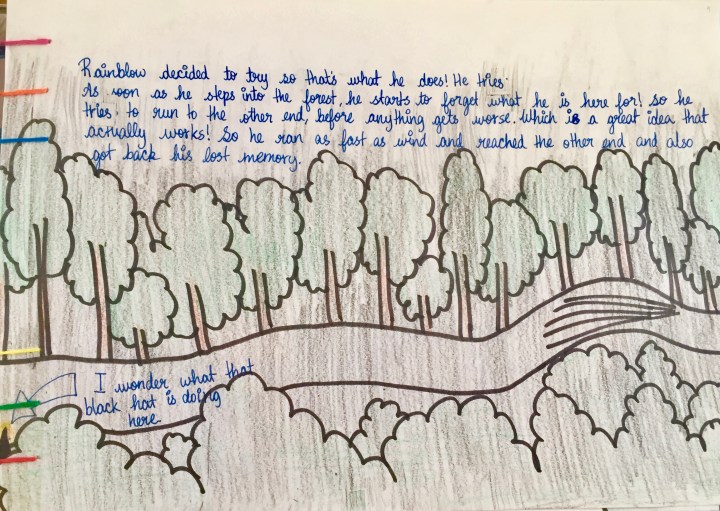 Rainblow decided to try so that's what he does! He tries.
As soon as he steps into the forest, he starts to forget what he is here for! So he
tries to run to the other end, before anything gets worse. Which is a great idea that
actually works! So he ran as fast as wind and reached the other end and also
got back his lost memory.
I wonder what that
black hat is doing
here.